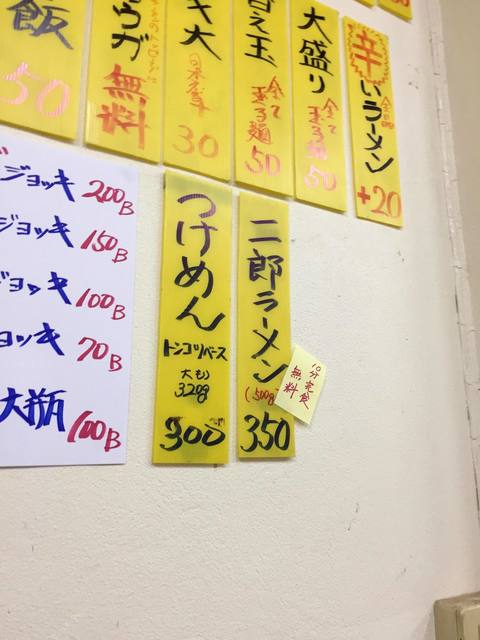 飯
50
無料
大
30
え玉
全て
玉子麺
50
大盛り
全て
玉子麺
50
辛いラーメン
+20
ジョッキ 200B
ジョッキ 150B
ジョッキ 100B
ョッキ 70B
大瓶 100B
つけめん
トンコツベース
大もり
320g
300
二郎ラーメン
(500g)
350
10分完食
無料